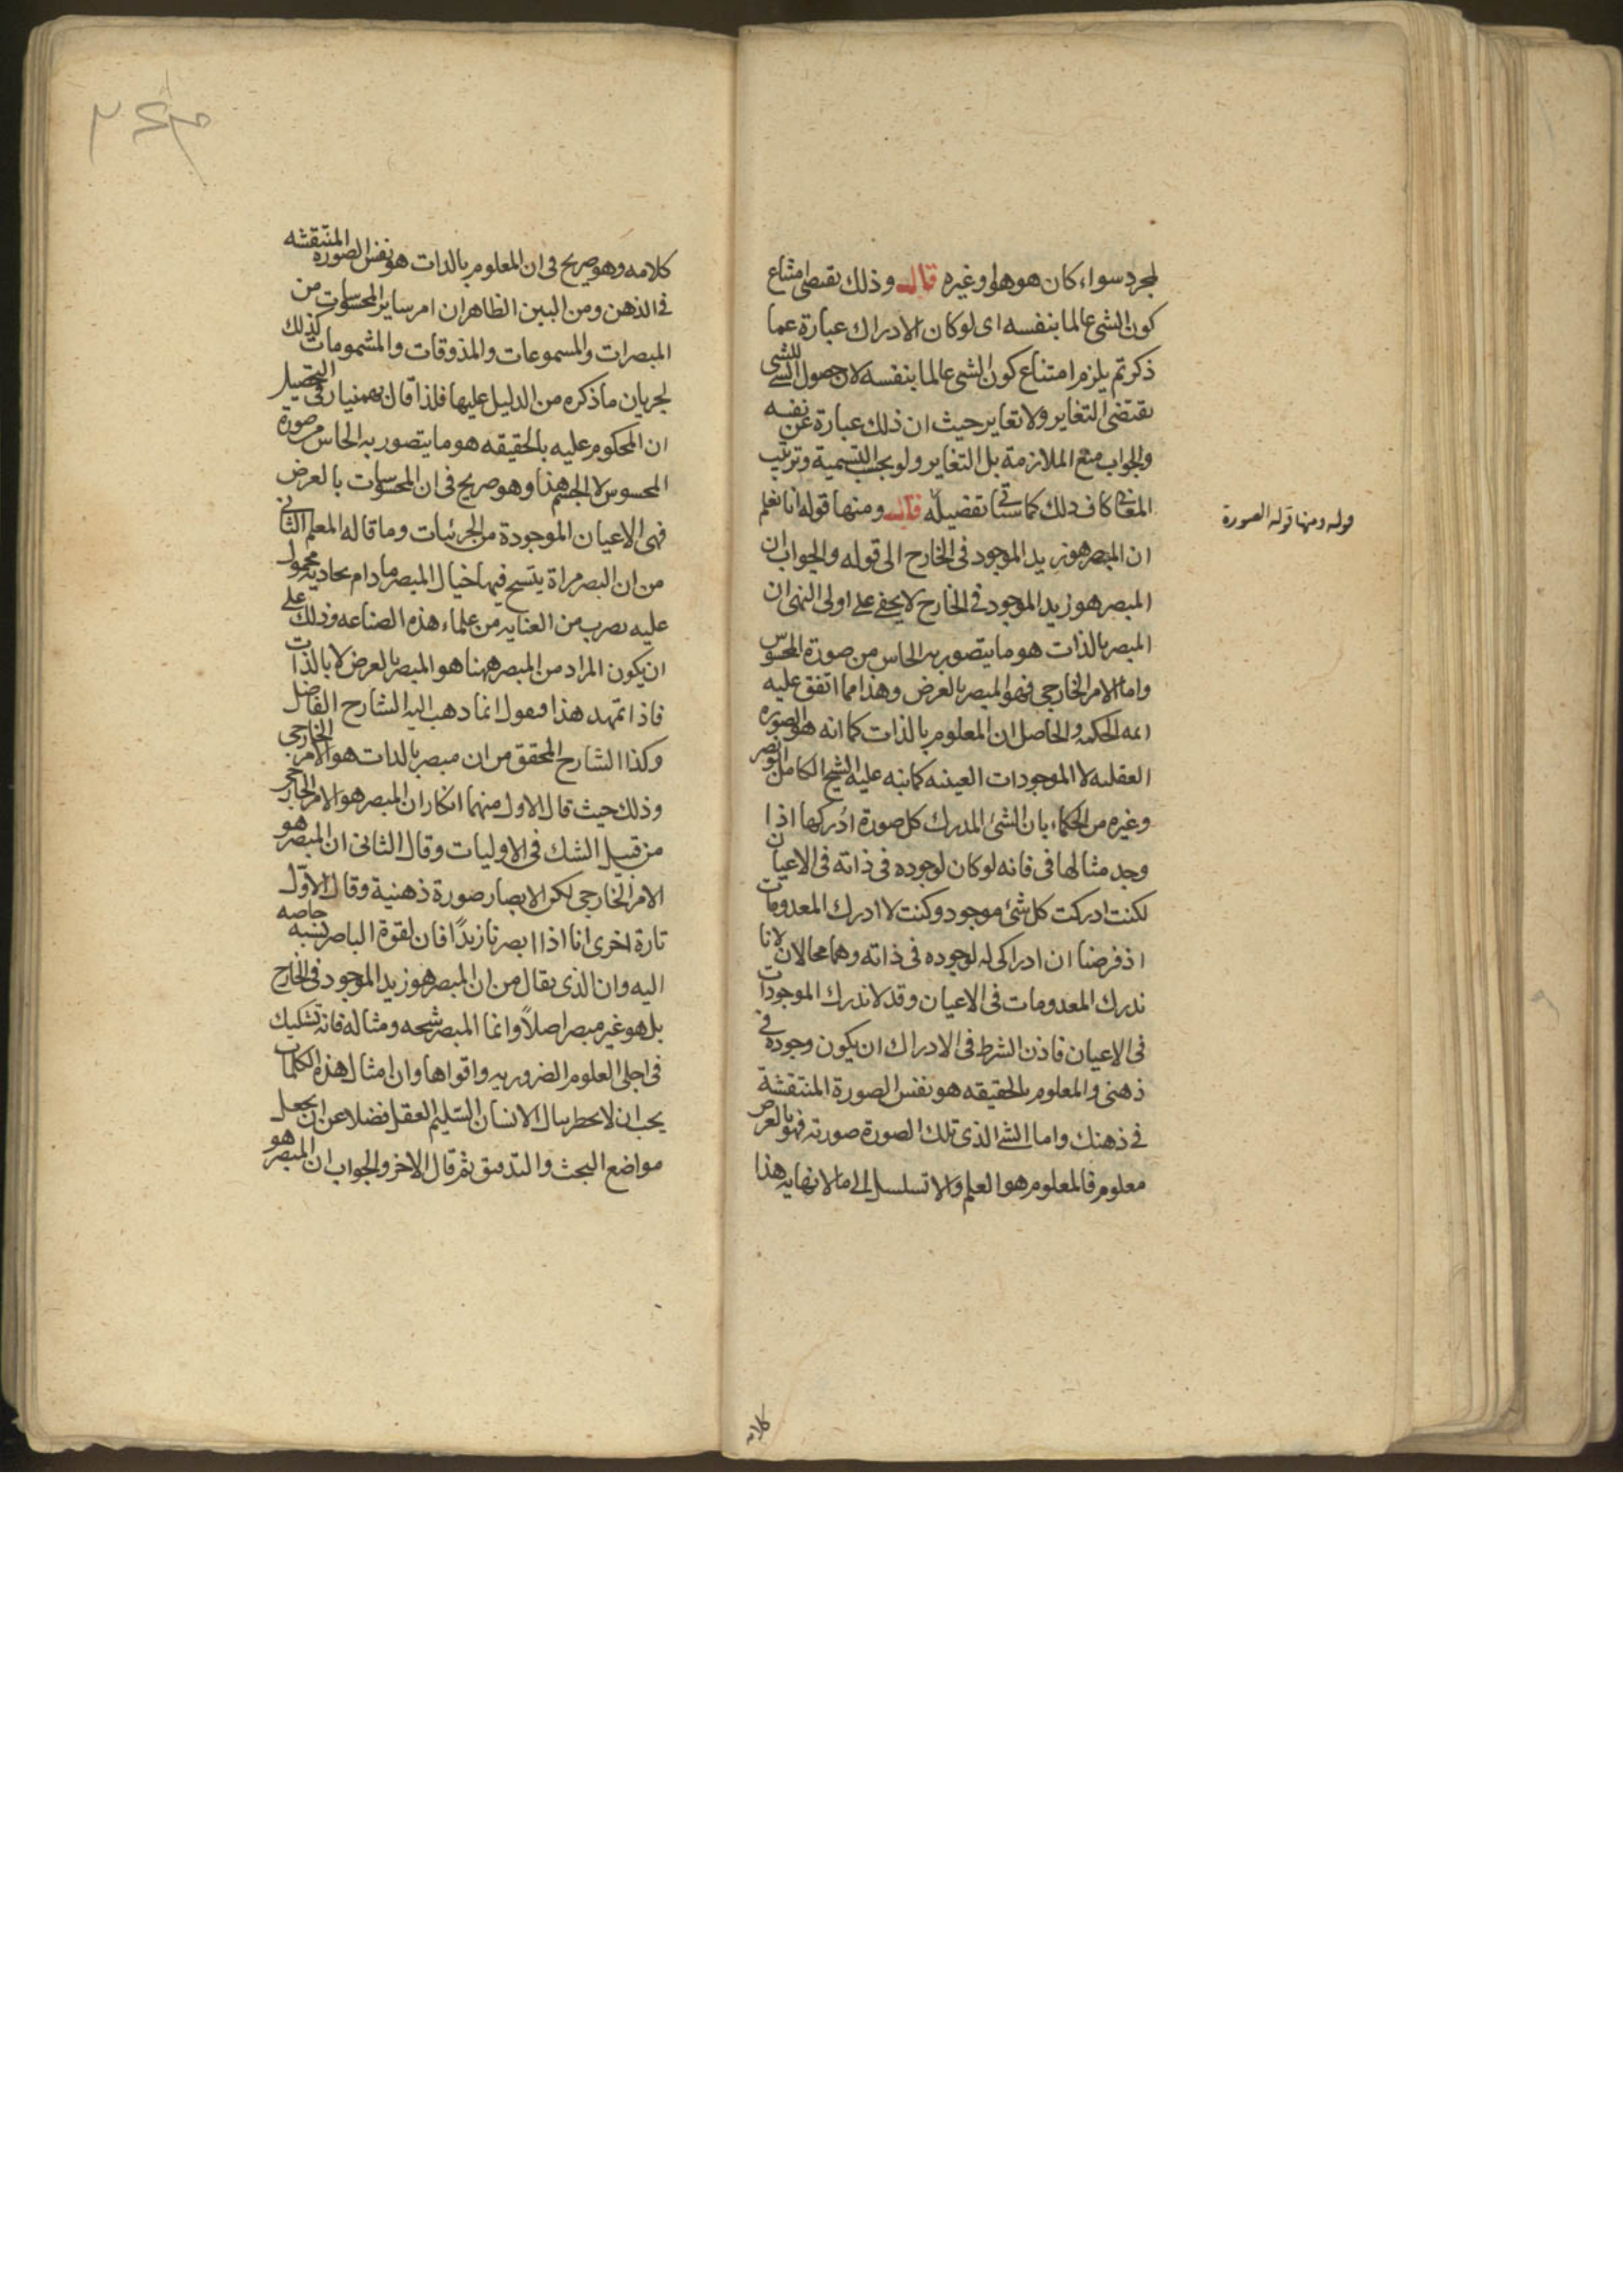 لمجرد سواء كان هو هو او غيره قال وذلك يقتضى امتناع
كون الشى عالما بنفسه اى لو كان الادراك عبارة عما
ذكرتم يلزم امتناع كون الشى عالما بنفسه لان حصول الشى للشى
يقتضى التغاير ولا تغاير حيث ان ذلك عبارة عن نفسه
والجواب منع الملازمة بل التغاير ولو بحسب التسمية وترتيب
المعنى كاف فى ذلك كما سيأتى تفصيله قال ومنها قوله انا نعلم
ان المبصر هو زيد الموجود فى الخارج الى قوله والجواب ان
المبصر هو زيد الموجود فى الخارج لا يخفى على اولى النهى ان
المبصر بالذات هو ما يتصور به الحاس من صورة المحسوس
واما الامر الخارجى فهو المبصر بالعرض وهذا مما اتفق عليه
ائمه الحكمة والحاصل ان المعلوم بالذات كما انه هو الصوره
العقليه لا الموجودات العينيه كما نبه عليه الشيخ الكامل ابو نصر
وغيره من الحكماء بان الشئ المدرك كل صورة ادركها اذا
وجد مثالها فى فانه لو كان لوجوده فى ذاته فى الاعيان
لكنت ادركت كل شئ موجود وكنت لا ادرك المعدومات
اذ فرضنا ان ادراكى له لوجوده فى ذاته وهما محالان لانا
ندرك المعدومات فى الاعيان وقد لا ندرك الموجودات
فى الاعيان فاذن الشرط فى الادراك ان يكون وجوده فى
ذهنى والمعلوم بالحقيقه هو نفس الصورة المنتقشة
فى ذهنك واما الشئ الذى تلك الصورة صورته فهو بالعرض
معلوم فالمعلوم هو العلم والا تسلسل الى ما لا نهايه هذا
قوله ومنها قوله الصورة
كلامه
كلامه وهو صريح فى ان المعلوم بالذات هو نفس الصوره المنتقشه
فى الذهن ومن البين الظاهر ان امر ساير المحسوسات من
المبصرات والمسموعات والمذوقات والمشمومات كذلك
لجريان ما ذكره من الدليل عليها فلذا قال بهمنيار فى التحصيل
ان المحكوم عليه بالحقيقه هو ما يتصور به الحاس من صورة
المحسوس لا الجسم هذا وهو صريح فى ان المحسوسات بالعرض
فهى الاعيان الموجودة من الجزئيات وما قاله المعلم الثانى
من ان البصر مراة يتسح فيها خيال المبصر ما دام يحاديه محمول
عليه بضرب من العنايه من علماء هذه الصناعه وذلك على
ان يكون المراد من المبصر ههنا هو المبصر بالعرض لا بالذات
فاذا تمهد هذا فنقول انما ذهب اليه الشارح الفاضل
وكذا الشارح المحقق من ان مبصر بالذات هو الامر الخارجى
وذلك حيث قال الاول منهما انكار ان المبصر هو الامر الخارجى
من قبيل الشك فى الاوليات وقال الثانى ان المبصر هو
الامر الخارجى لكن الابصار صورة ذهنية وقال الاوّل
تارة اخرى انا اذا ابصرنا زيدًا فان لقوة الباصر نسبه خاصه
اليه وان الذى يقال من ان المبصر هو زيد الموجود فى الخارج
بل هو غير مبصر اصلًا وانما المبصر شبحه ومثاله فانه تشكيك
فى اجلى العلوم الضروريه واقواها وان امثال هذه الكلمات
يجب ان لا يخطر ببال الانسان السّليم العقل فضلا عن ان يجعل
مواضع البحث والتدقيق ثم قال الاخر والجواب ان المبصر هو